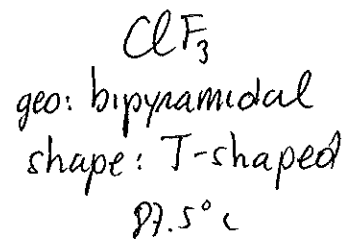 ClF₃
geo: bipyramidal
shape: T-shaped
87.5°